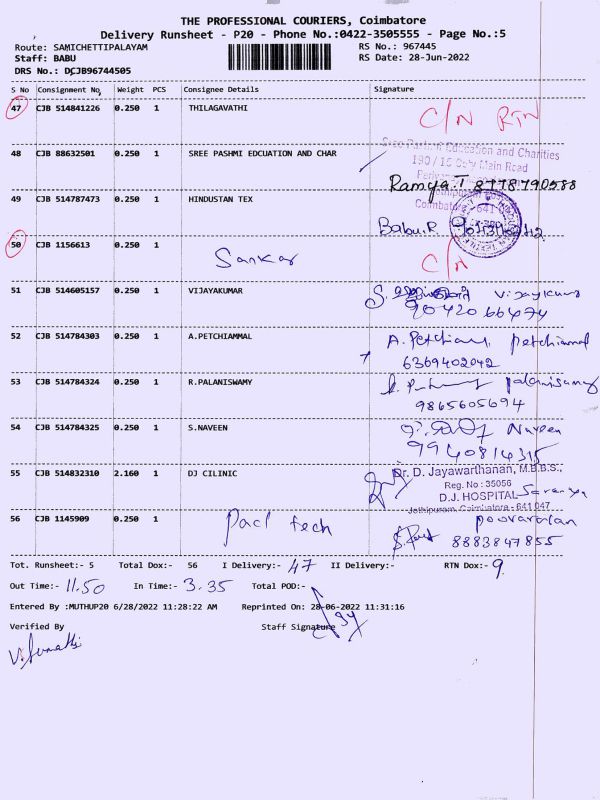 THE PROFESSIONAL COURIERS, Coimbatore
Delivery Runsheet - P20 - Phone No.:0422-3505555 - Page No.:5
Route: SAMICHETTIPALAYAM RS No.: 967445
Staff: BABU RS Date: 28-Jun-2022
DRS No.: DCJB96744505
S No Consignment No Weight PCS Consignee Details Signature
47 CJB 514841226 0.250 1 THILAGAVATHI C/N RTN
48 CJB 88632501 0.250 1 SREE PASHMI EDCUATION AND CHAR
Education and Charities
Main Road
Ramya.T 8778790588
49 CJB 514787473 0.250 1 HINDUSTAN TEX
Babu.R
50 CJB 1156613 0.250 1 Sankar C/N
51 CJB 514605157 0.250 1 VIJAYAKUMAR S. Vijaykumar
9042066474
52 CJB 514784303 0.250 1 A.PETCHIAMMAL A. Petchiammal
6369402042
53 CJB 514784324 0.250 1 R.PALANISWAMY Palaniswamy
9865605694
54 CJB 514784325 0.250 1 S.NAVEEN Naveen
9940814315
55 CJB 514832310 2.160 1 DJ CILINIC
Dr. D. Jayawarthanan, M.B.B.S.,
Reg. No : 35056
D.J. HOSPITAL Saranya
Jothipuram, Coimbatore - 641 047
56 CJB 1145909 0.250 1 Pacl tech
8883847855
Tot. Runsheet:- 5 Total Dox:- 56 I Delivery:- 47 II Delivery:- RTN Dox:- 9
Out Time:- 11.50 In Time:- 3.35 Total POD:-
Entered By :MUTHUP20 6/28/2022 11:28:22 AM Reprinted On: 28-06-2022 11:31:16
Verified By Staff Signature